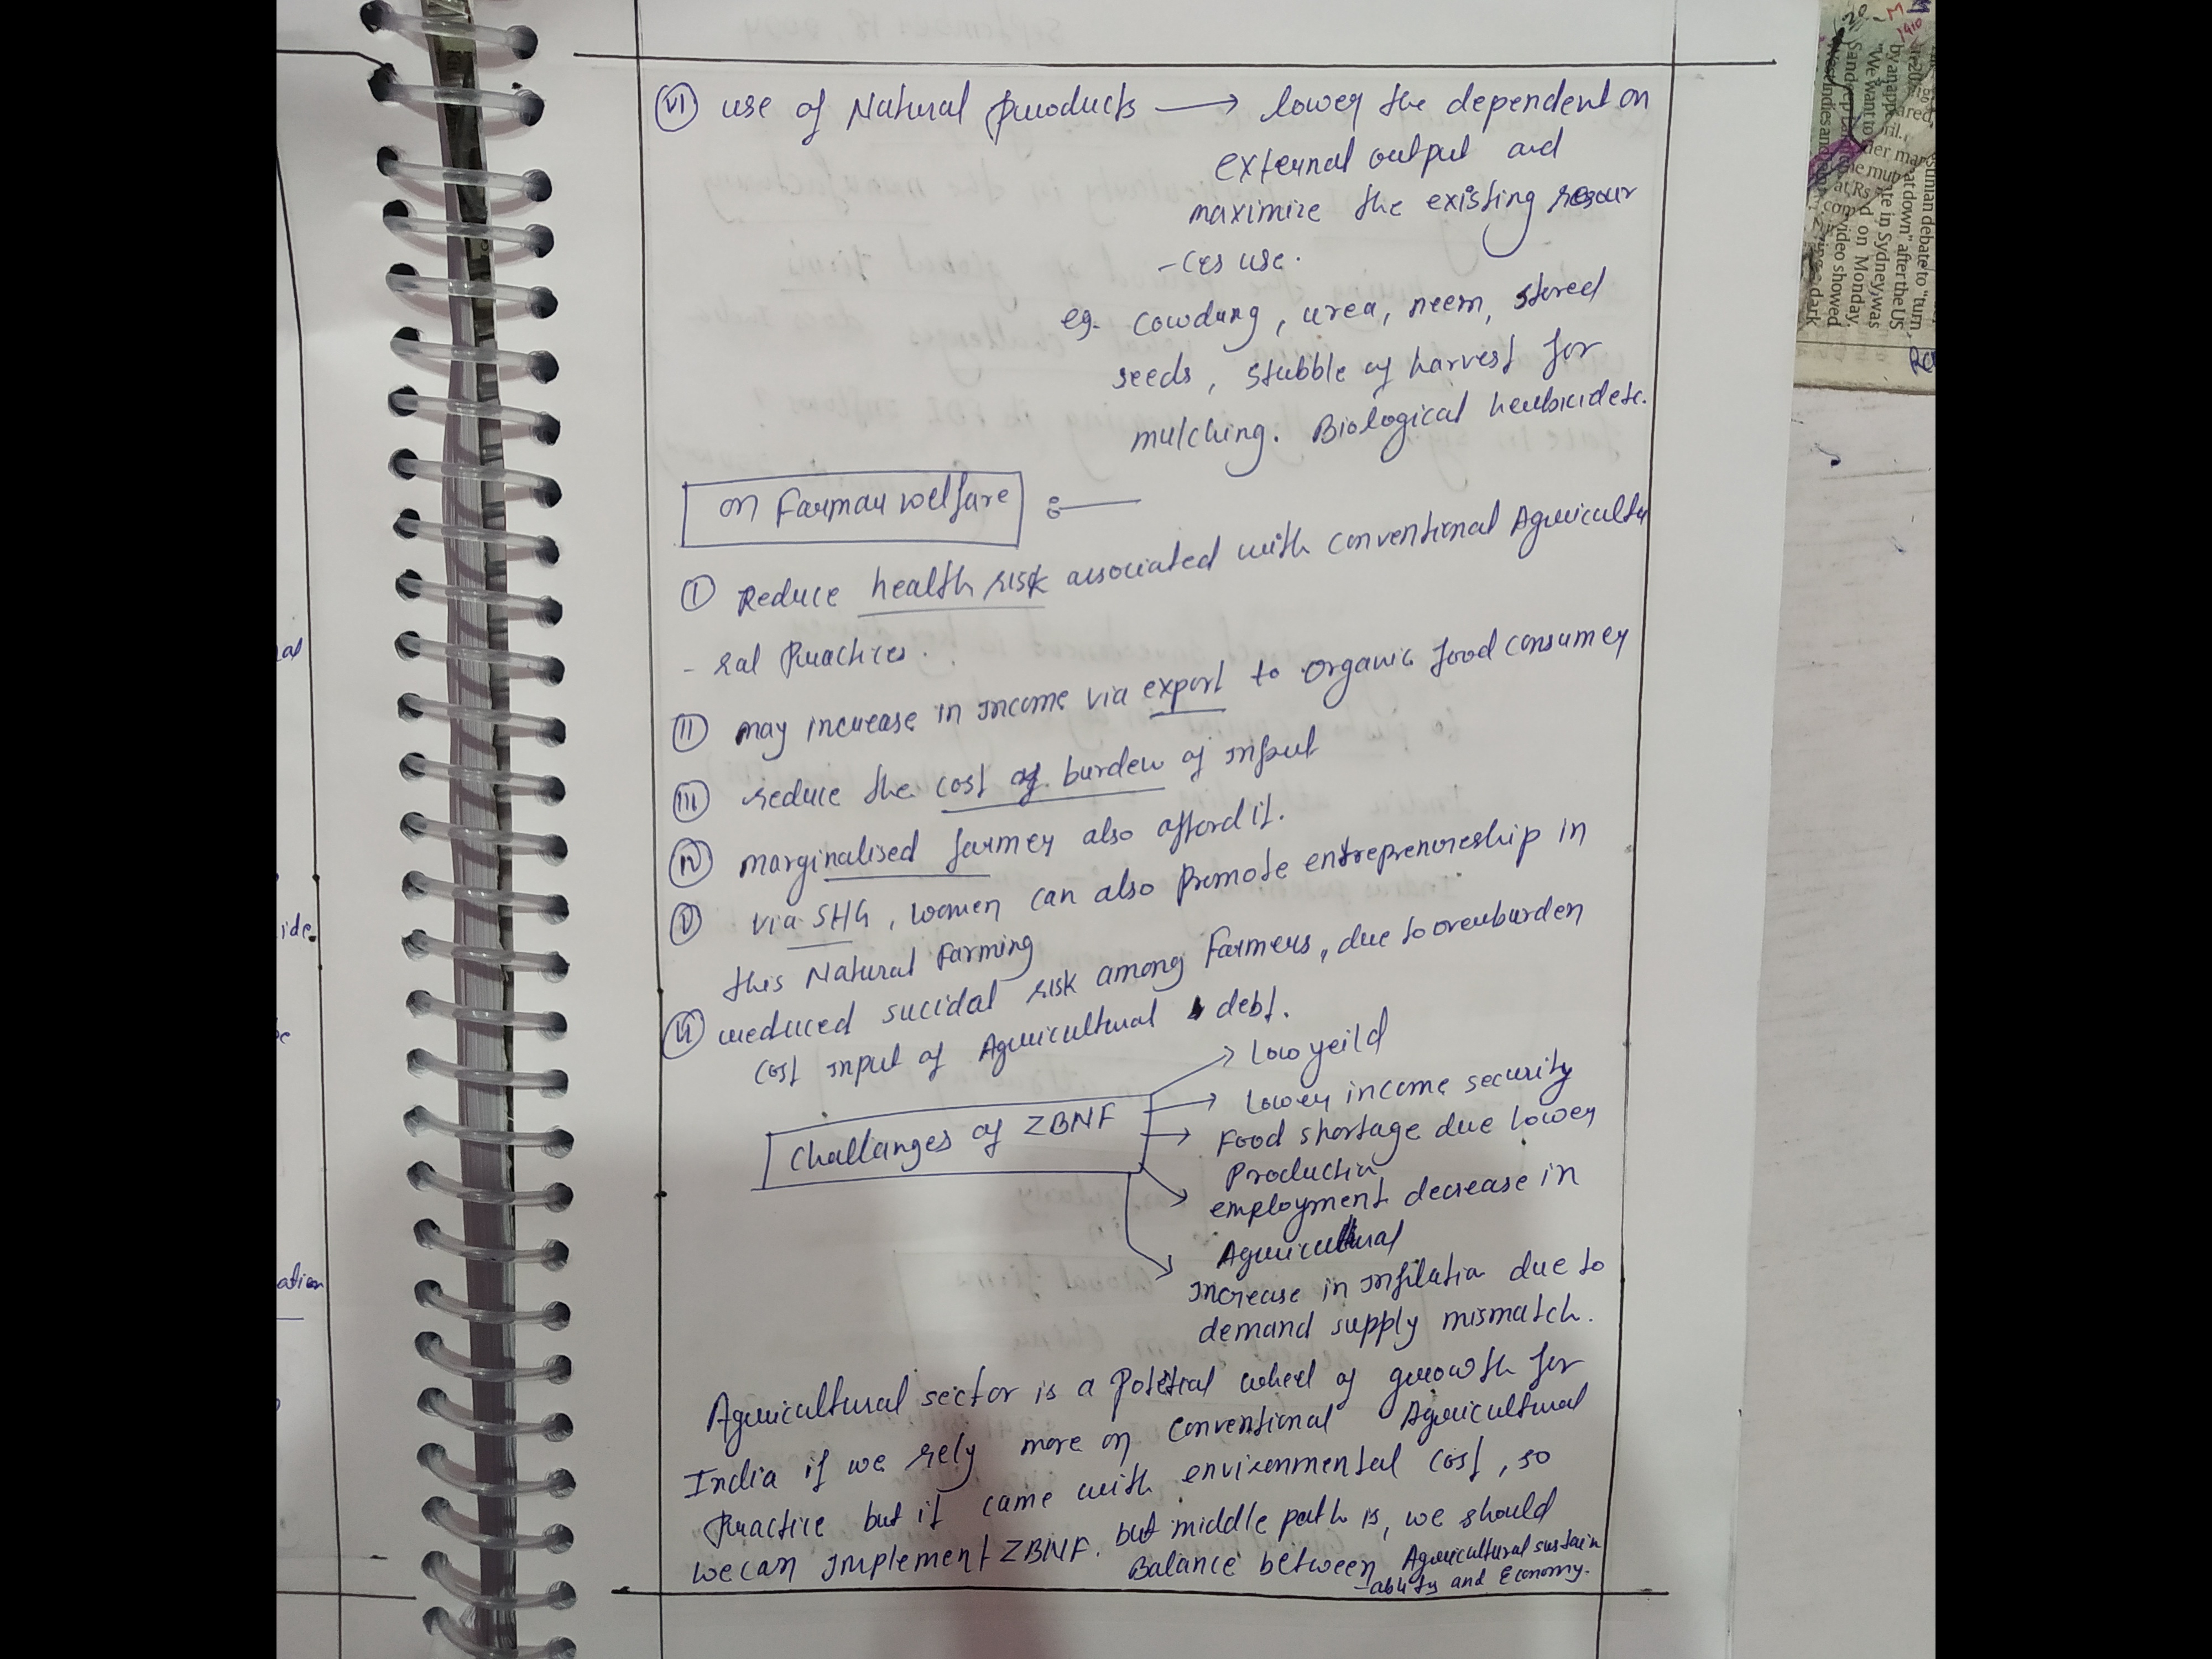 (VI) use of Natural products → lower the dependent on
external output and
maximize the existing resour
-ces use.
eg. cowdung, urea, neem, stored
seeds, stubble of harvest for
mulching. Biological herbicidetc.
on Farmar welfare :—
(I) Reduce health risk associated with conventional Agricultu
- ral Practices.
(II) may increase in income via export to organic food consumer
(III) reduce the cost of burden of input
(IV) marginalised farmer also afford it.
(V) via SHG, women can also promote entreprenoreship in
this Natural Farming
(VI) reduced sucidal risk among Farmers, due to overburden
cost input of Agricultural debt.
Challanges of ZBNF
→ Low yeild
→ Lower income security
→ Food shortage due lower
Production
→ employment decrease in
Agricultural
→ increase in infilation due to
demand supply mismatch.
Agricultural sector is a potetial wheel of growth for
India if we rely more on conventional Agricultural
Practice but it came with environmental cost, so
we can implement ZBNF. but middle path is, we should
Balance between Agricultural sustain
-ability and Economy.
al
ide.
ation
20
M
1910
by an appe
"We want to
Sandeep
West Indies and
ared,
ril.
der
at Rs
com
video showed
d on Monday.
te in Sydney, was
at down" after the US
nian debate to "turn
dark